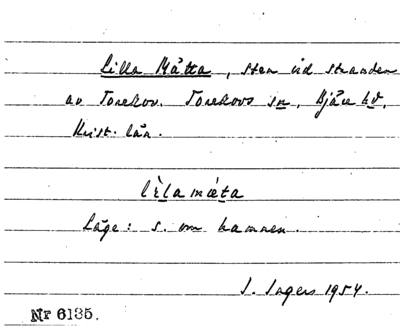 Lilla Måtta, sten vid stranden
av Torekov. Torekovs sn, Bjäre hd,
Krist. län.
Läge: S. om hamnen.
I. Ingers 1954.
Nr 6135.